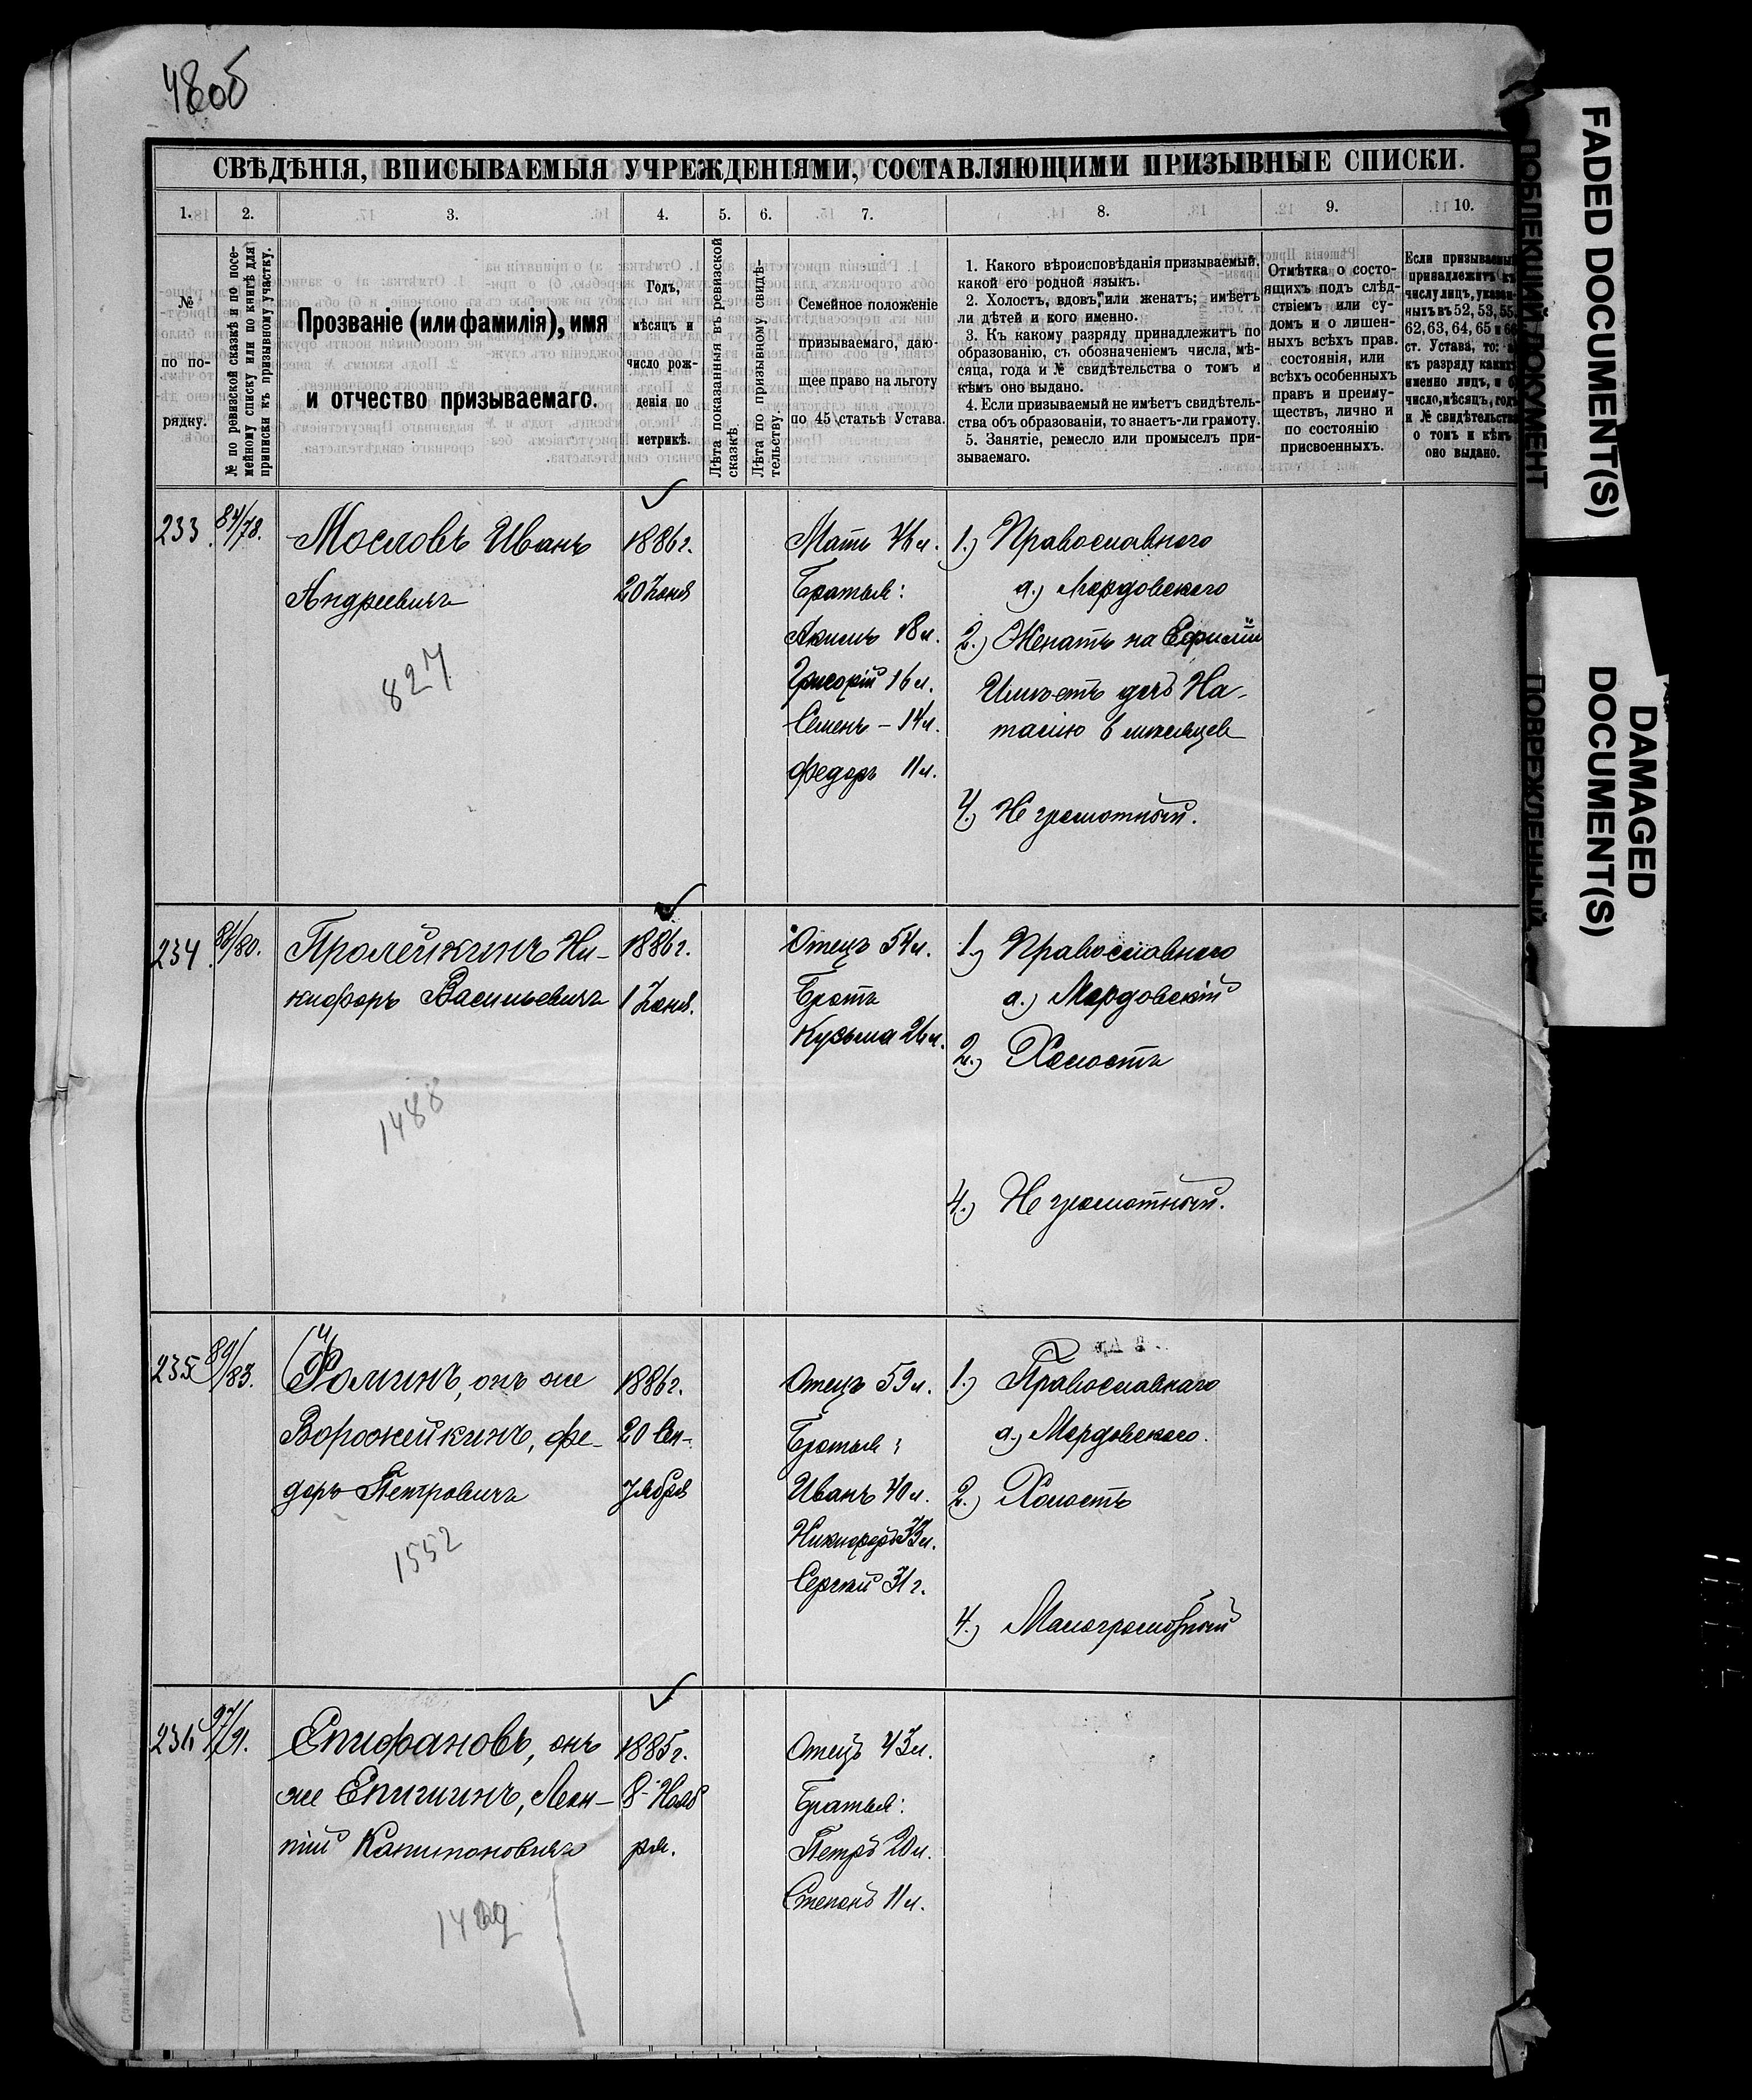 48об
СВѢДѢНІЯ, ВПИСЫВАЕМЫЯ УЧРЕЖДЕНІЯМИ, СОСТАВЛЯЮЩИМИ ПРИЗЫВНЫЕ СПИСКИ.
1. 2. 3. 4. 5. 6. 7. 8. 9. 10.
№
по по-
рядку.
№ по ревизской сказкѣ и по посе-
мейному списку или по книгѣ для
приписки къ призывному участку.
Прозваніе (или фамилія), имя
и отчество призываемаго.
Годъ,
мѣсяцъ и
число рож-
денія по
метрикѣ.
Лѣта показанныя въ ревизской
сказкѣ.
Лѣта по призывному свидѣ-
тельству.
Семейное положеніе
призываемаго, даю-
щее право на льготу
по 45 статьѣ Устава.
1. Какого вѣроисповѣданія призываемый,
какой его родной языкъ.
2. Холостъ, вдовъ, или женатъ; имѣетъ
ли дѣтей и кого именно.
3. Къ какому разряду принадлежитъ по
образованію, съ обозначеніемъ числа, мѣ-
сяца, года и № свидѣтельства о томъ и
кѣмъ оно выдано.
4. Если призываемый не имѣетъ свидѣтель-
ства объ образованіи, то знаетъ-ли грамоту.
5. Занятіе, ремесло или промыселъ при-
зываемаго.
Отмѣтка о состо-
ящихъ подъ слѣд-
ствіемъ или су-
домъ и о лишен-
ныхъ всѣхъ прав.
состоянія, или
всѣхъ особенныхъ
правъ и преиму-
ществъ, лично и
по состоянію
присвоенныхъ.
Если призываемый
принадлежитъ къ
числу лицъ, указан-
ныхъ въ 52, 53, 55,
62, 63, 64, 65 и 66
ст. Устава, то: а)
къ разряду какихъ
именно лицъ, и б)
число, мѣсяцъ, годъ
и № свидѣтельства
о томъ и кѣмъ
оно выдано.
233. 84/78.
Мословъ Иванъ
Андреевичъ
827
1886 г.
20 Іюня
Мать 46 л.
Братья:
Акимъ 18 л.
Григорій 16 л.
Семенъ - 14 л.
Федоръ 11 л.
1.) Православного
а.) Мордовского
2.) Женатъ на
Имѣетъ дочь На-
талію 6 мѣсяцев
4.) Не грамотный.
234. 86/80.
Пролейкинъ Ни-
кифоръ Васильевичъ
1488
1886 г.
1 Іюня.
Отецъ 54 л.
Братъ
Кузьма 26 л.
1.) Православного
а.) Мордовскій
2.) Холостъ
4.) Не грамотный.
235 89/83.
Фоминъ, онъ же
Ворожейкинъ, Фе-
доръ Петровичъ
1552
1886 г.
20 Сен-
тября
Отецъ 59 л.
Братья:
Иванъ 40 л.
Никифоръ 33 л.
Сергѣй 31 г.
1.) Православнаго
а.) Мордовского.
2.) Холостъ
4.) Малограмотный
236 97/91.
Епифановъ, онъ
же Епишинъ, Леон-
тій Капитоновичъ
1885 г.
8 Нояб
ря.
Отецъ 43 л.
Братья:
Петръ 20 л.
Степанъ 11 л.
FADED DOCUMENT(S)
ПОБЛЕКШИЙ ДОКУМЕНТ
DAMAGED
DOCUMENT(S)
ПОВРЕЖДЕННЫЙ